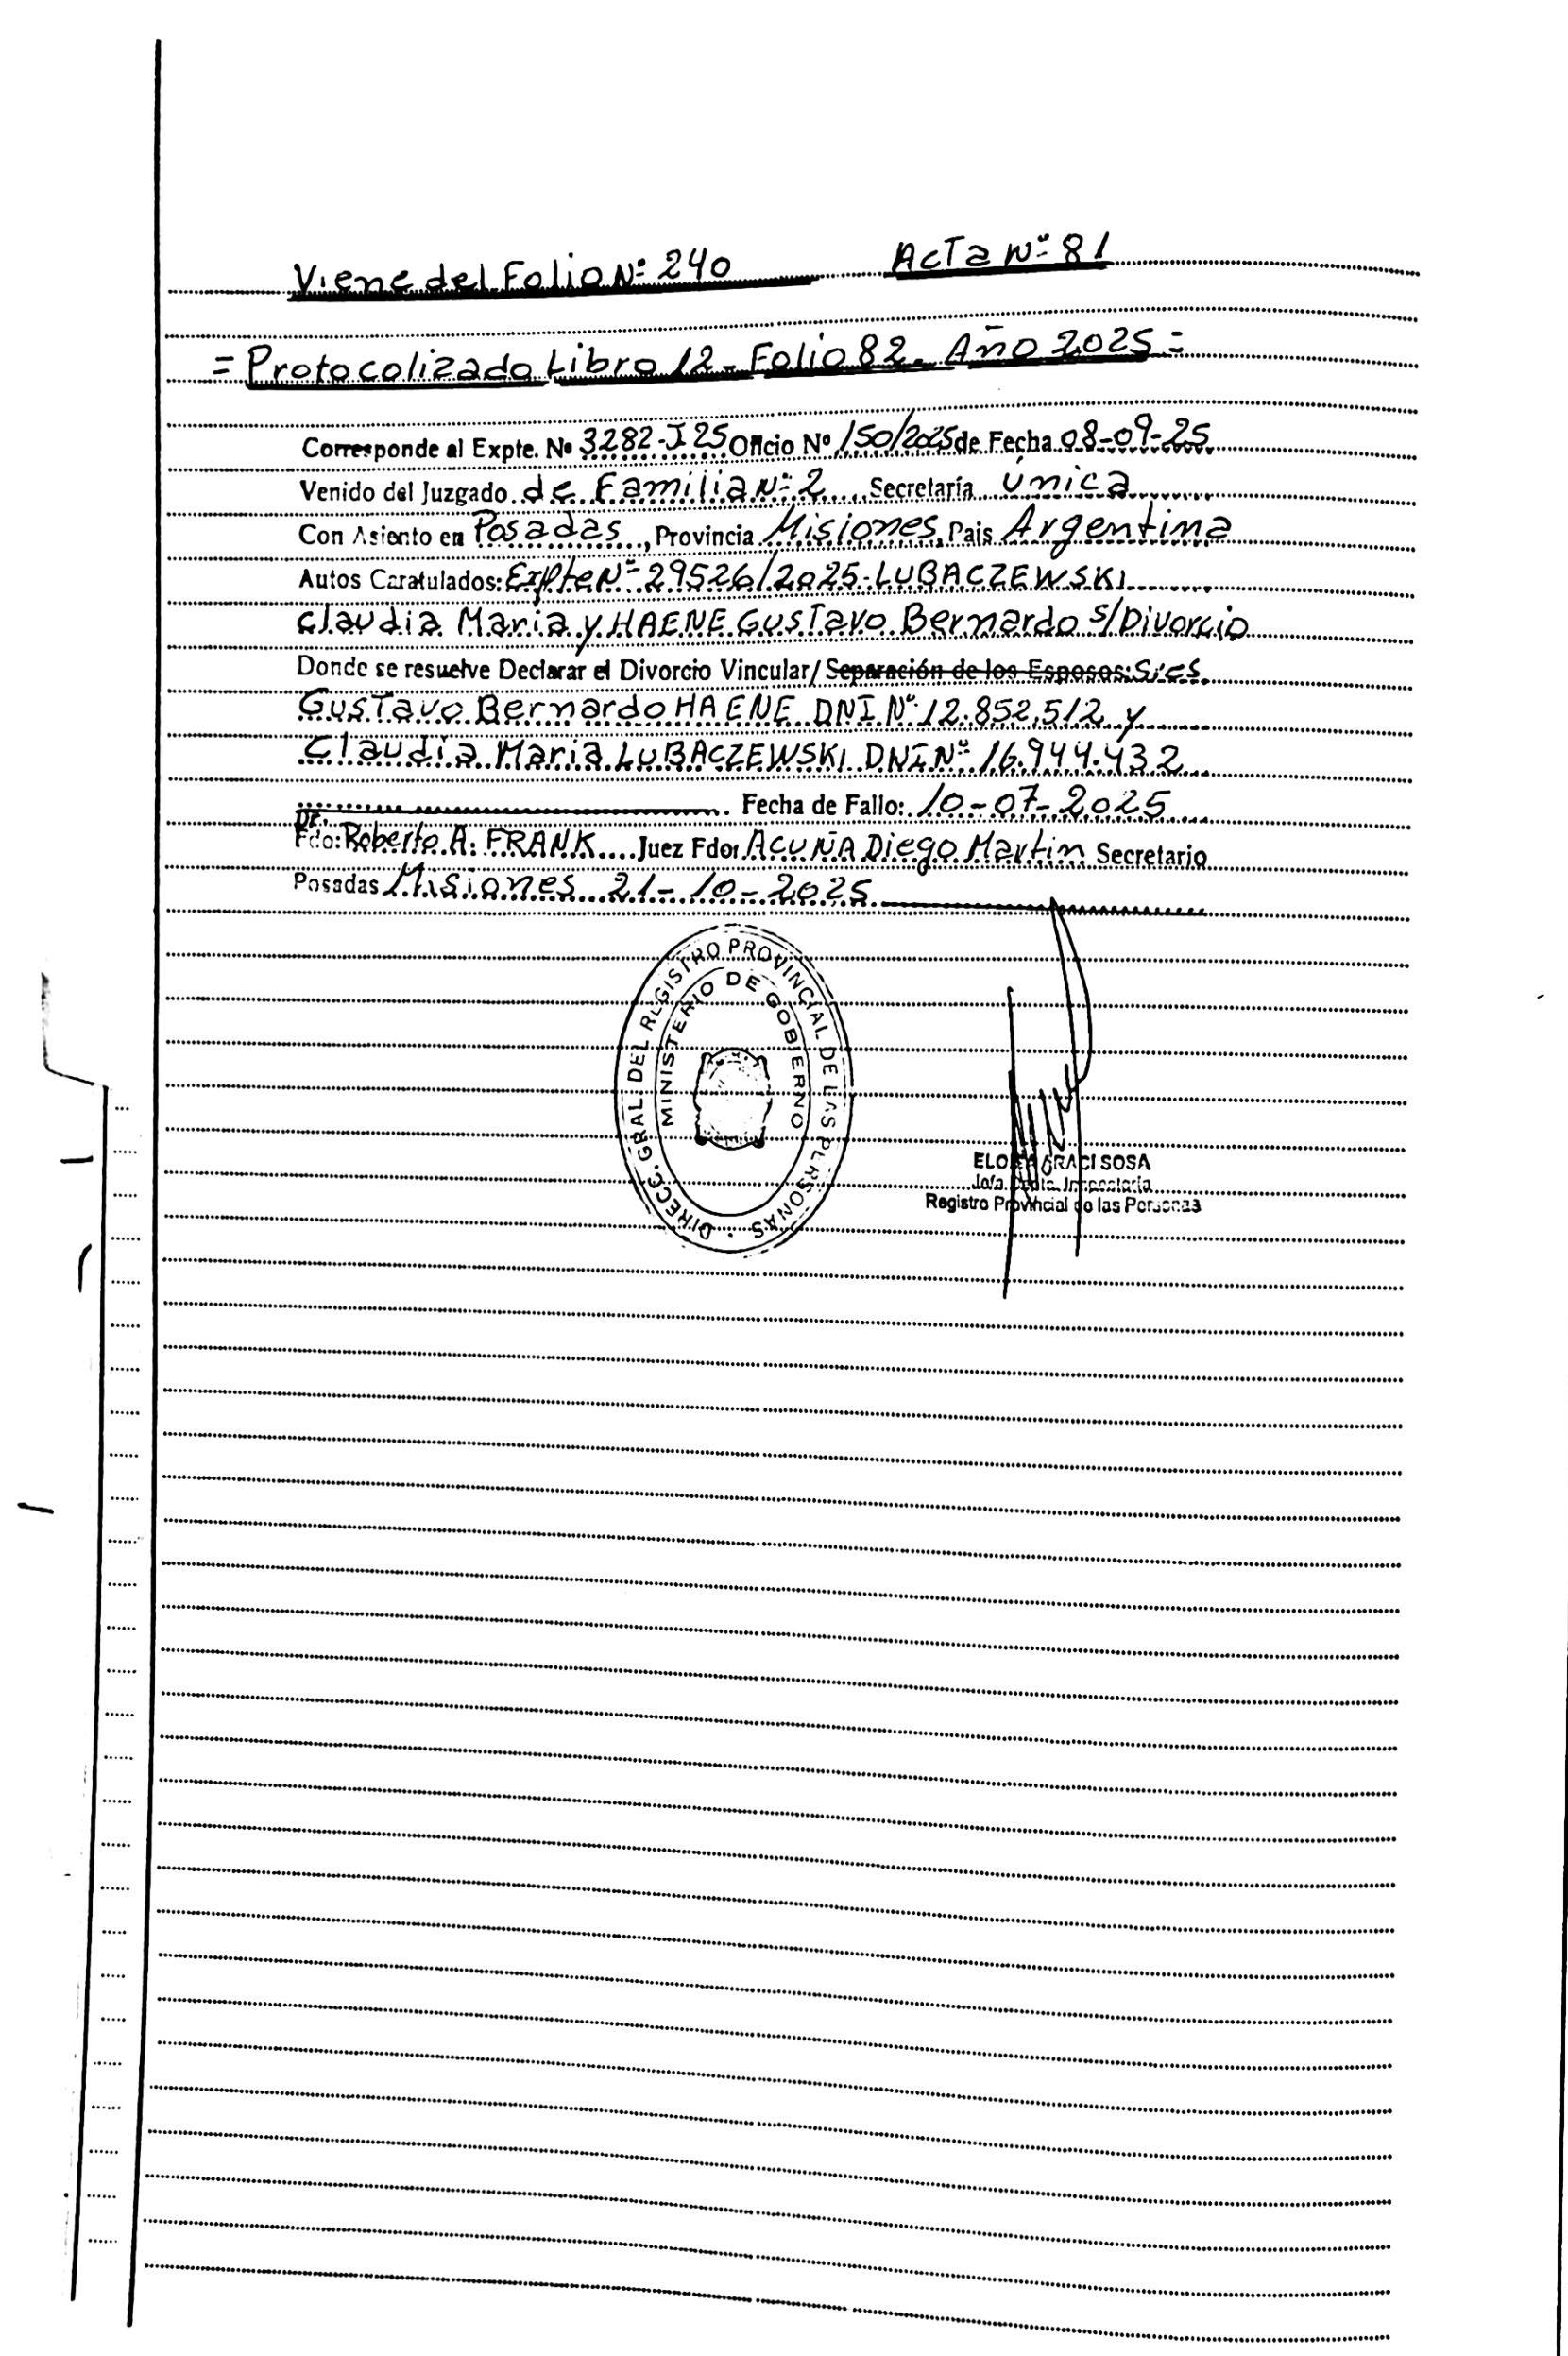 Viene del Folio Nº 240 Acta Nº 81
= Protocolizado Libro 12 - Folio 82 - Año 2025 =
Corresponde al Expte. Nº 3282-J 25 Oficio Nº 150/2025 de Fecha 08-09-25
Venido del Juzgado de Familia Nº 2 Secretaría Única
Con Asiento en Posadas, Provincia Misiones, Pais Argentina
Autos Caratulados: Expte Nº 29526/2025-LUBACZEWSKI
Claudia Maria y HAENE Gustavo Bernardo s/Divorcio
Donde se resuelve Declarar el Divorcio Vincular/ Separación de los Esposos: S/es
Gustavo Bernardo HAENE DNI Nº 12.852.512 y
Claudia Maria LUBACZEWSKI DNI Nº 16.944.432
Fecha de Fallo: 10-07-2025
Dr.
Fdo: Roberto A. FRANK Juez Fdo: ACUÑA Diego Martin Secretario
Posadas Misiones 21-10-2025
DIRECC. GRAL. DEL REGISTRO PROVINCIAL DE LAS PERSONAS
MINISTERIO DE GOBIERNO
GRACI SOSA
Jefa Dpto. Inspectoría
Registro Provincial de las Personas